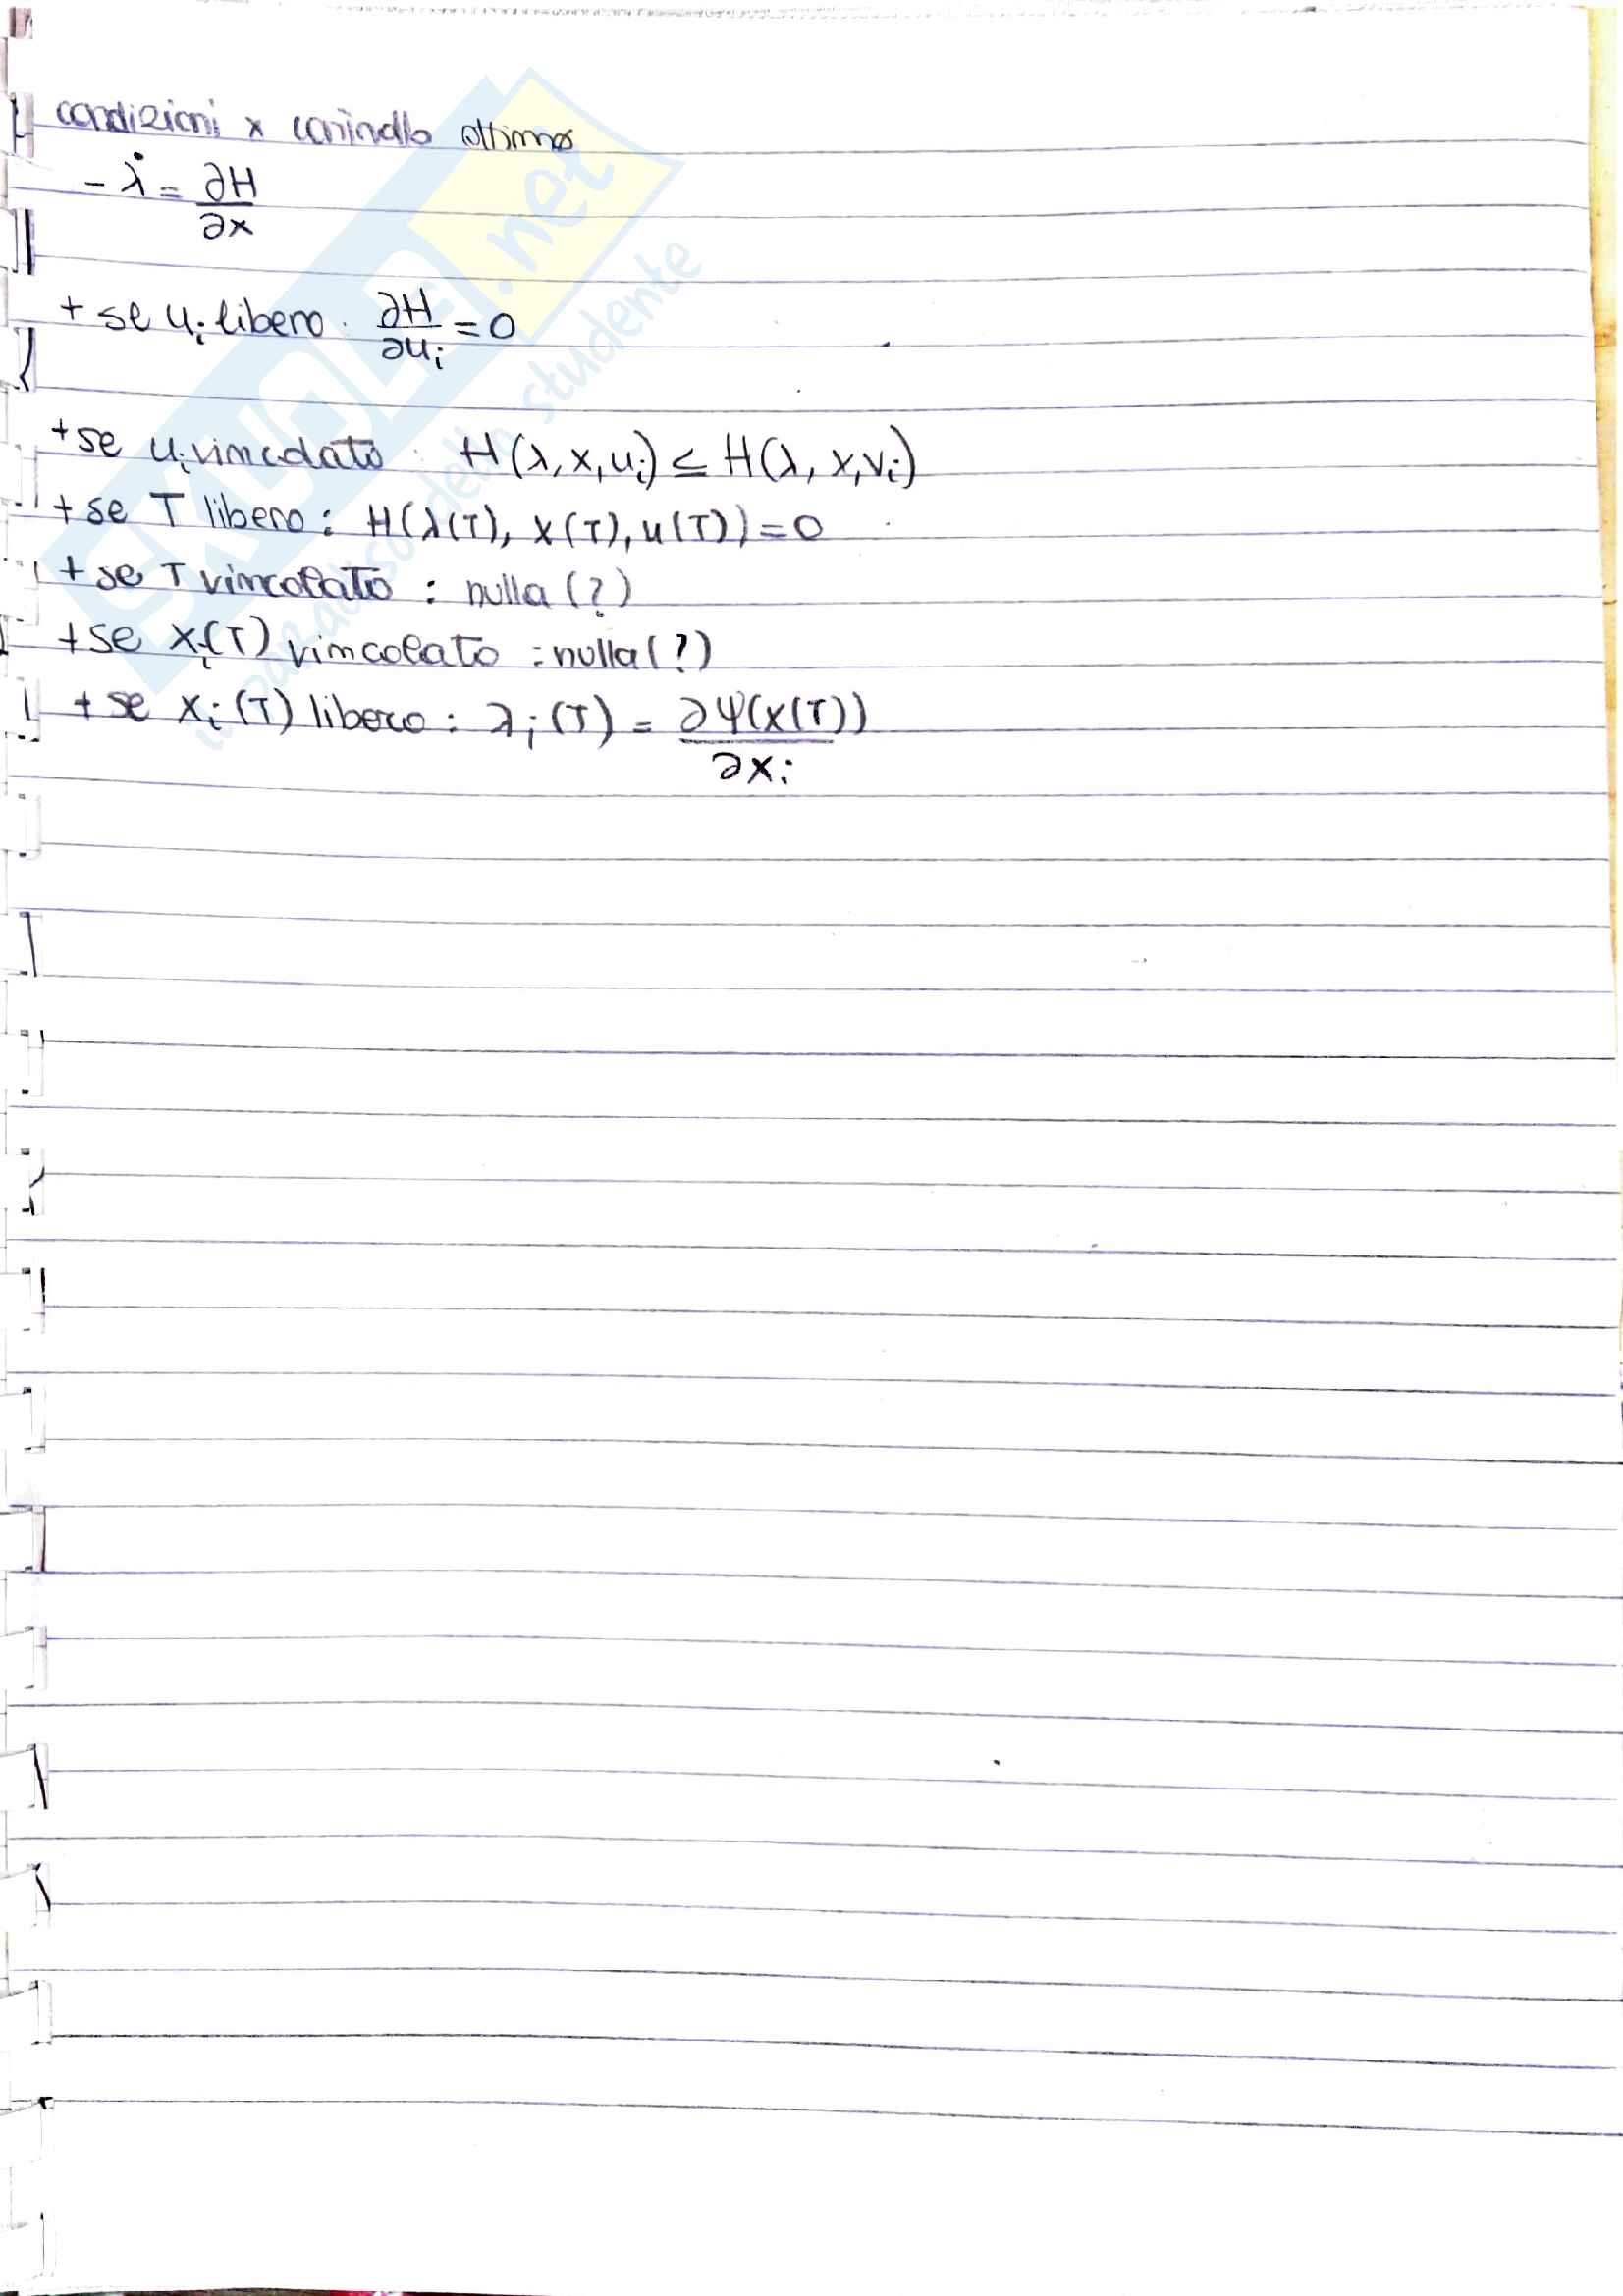 condizioni x controllo ottimo
- λ̇ = ∂H/∂x
+ se uᵢ libero: ∂H/∂uᵢ = 0
+ se uᵢ vincolato: H(λ, x, uᵢ) ≤ H(λ, x, vᵢ)
+ se T libero: H(λ(T), x(T), u(T)) = 0
+ se T vincolato: nulla (?)
+ se xᵢ(T) vincolato: nulla (?)
+ se xᵢ(T) libero: λᵢ(T) = ∂Ψ(x(T))/∂xᵢ
SKUOLA.net
il paradiso dello studente